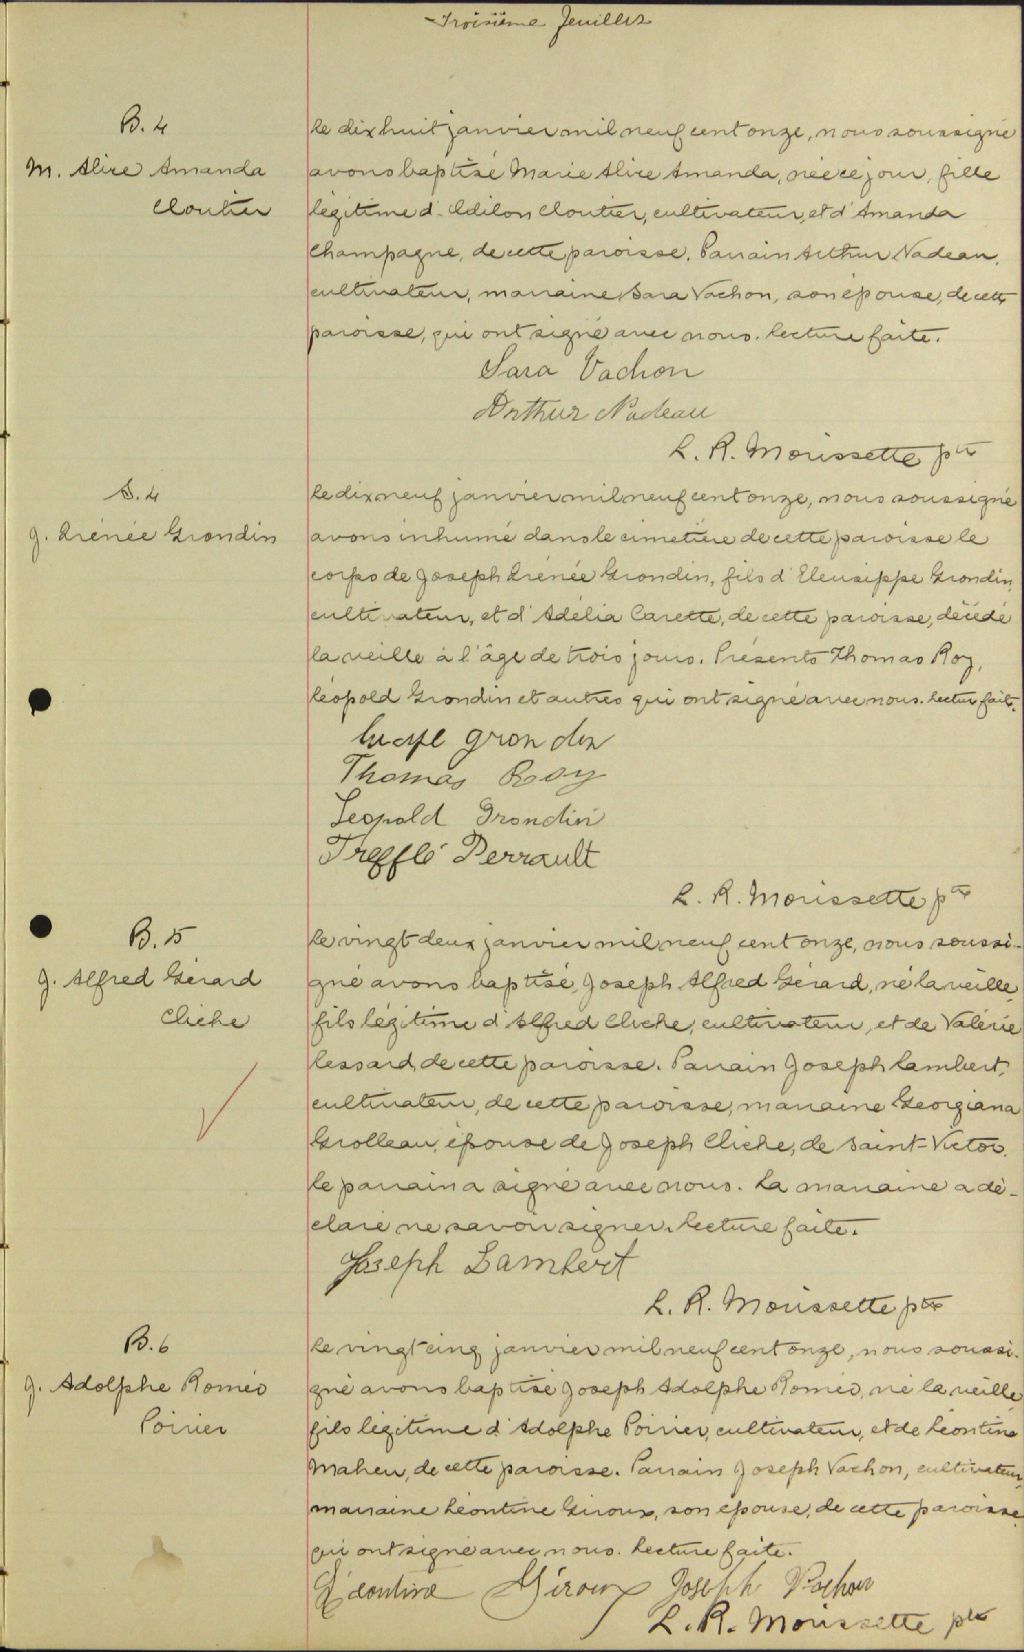 Troisième feuillet
B. 4
M. Alice Amanda
Cloutier
Le dix huit janvier mil neuf cent onze, nous soussigné
avons baptisé Marie Alice Amanda, née ce jour, fille
légitime d'Odilon Cloutier, cultivateur, et d'Amanda
Champagne, de cette paroisse. Parrain Arthur Nadeau,
cultivateur, marraine Sara Vachon, son épouse, de cette
paroisse, qui ont signé avec nous. Lecture faite.
Sara Vachon
Arthur Nadeau
L. R. Morissette ptre
S. 4
J. Irénée Grondin
Le dix neuf janvier mil neuf cent onze, nous soussigné
avons inhumé dans le cimetière de cette paroisse le
corps de Joseph Irénée Grondin, fils d'Eleusippe Grondin,
cultivateur, et d'Adélia Carette, de cette paroisse, décédé
la veille à l'âge de trois jours. Présents Thomas Roy,
Léopold Grondin et autres qui ont signé avec nous. Lecture faite.
Grondin
Thomas Roy
Leopold Grondin
Trefflé Perrault
L. R. Morissette ptre
B. 5
J. Alfred Gérard
Cliche
Le vingt deux janvier mil neuf cent onze, nous soussi-
gné avons baptisé Joseph Alfred Gérard, né la veille,
fils légitime d'Alfred Cliche, cultivateur, et de Valérie
Lessard, de cette paroisse. Parrain Joseph Lambert,
cultivateur, de cette paroisse, marraine Georgiana
Grolleau, épouse de Joseph Cliche, de Saint-Victor.
Le parrain a signé avec nous. La marraine a dé-
claré ne savoir signer. Lecture faite.
Joseph Lambert
L. R. Morissette ptre
B. 6
J. Adolphe Roméo
Poirier
Le vingt cinq janvier mil neuf cent onze, nous soussi-
gné avons baptisé Joseph Adolphe Roméo, né la veille,
fils légitime d'Adolphe Poirier, cultivateur, et de Léontine
Maheu, de cette paroisse. Parrain Joseph Vachon, cultivateur,
marraine Léontine Giroux, son épouse, de cette paroisse,
qui ont signé avec nous. Lecture faite.
Léontine Giroux Joseph Vachon
L. R. Morissette ptre